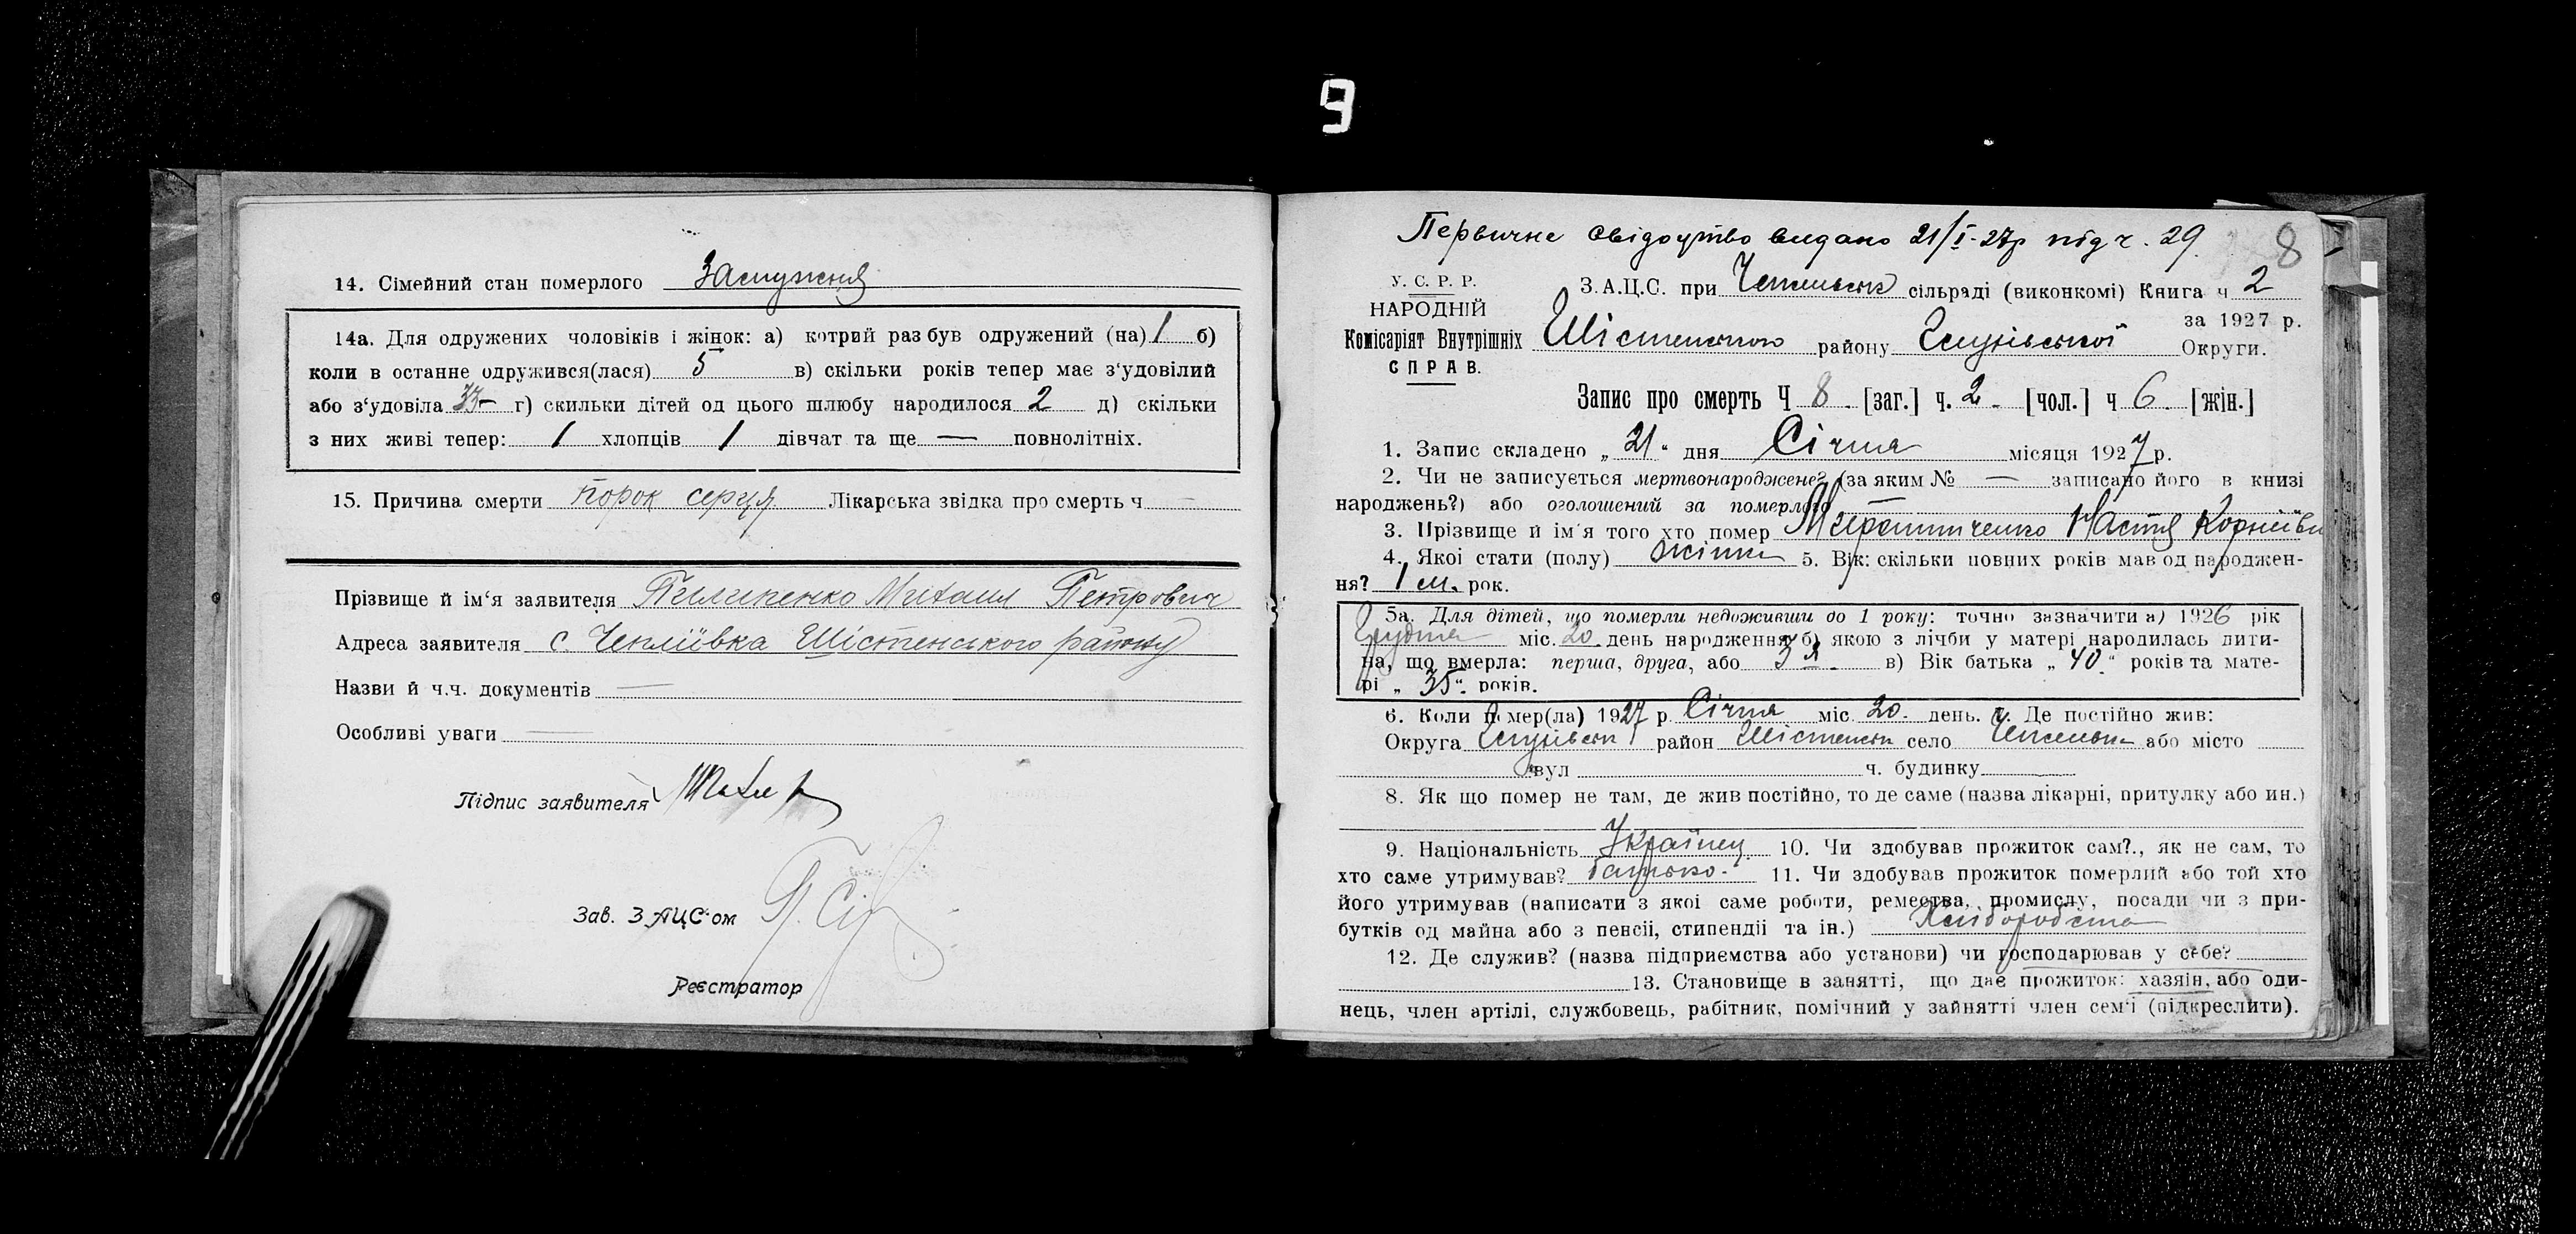 9
14. Сімейний стан померлого Замужня
14а. Для одружених чоловіків і жінок: а) котрий раз був одружений (на) 1 б)
коли в останне одружився(лася) 5 в) скільки років тепер має з‘удовілий
або з‘удовіла 33- г) скильки дітей од цього шлюбу народилося 2 д) скільки
з них живі тепер: 1 хлопців 1 дівчат та ще — повнолітніх.
15. Причина смерти порок серця Лікарська звідка про смерть ч —
Прізвище й ім‘я заявителя Пилипенко Михаил Петрович
Адреса заявителя с. Чепліївка Шістенського району
Назви й ч.ч. документів —
Особливі уваги —
Підпис заявителя
Зав. ЗАЦС-ом
Реєстратор
Первичне свідоцтво видано 21/I-27р під ч. 29. 8
У. С. Р. Р.
НАРОДНІЙ
Комісаріят Внутрішніх
СПРАВ.
З.А.Ц.С. при сільраді (виконкомі) Книга ч 2
за 1927 р.
Шістенського району Округи.
Запис про смерть Ч 8. [заг.] ч. 2. [чол.] ч 6. [жін.]
1. Запис складено „21“ дня Січня місяця 1927 р.
2. Чи не записується мертвонароджене? (за яким № — записано його в книзі
народжень?) або оголошений за померлого —
3. Прізвище й ім‘я того хто помер Настя Корніївн
4. Якоі стати (полу) жінка 5. Вік: скільки повних років мав од народжен-
ня? 1 м. рок.
5а. Для дітей, що померли недоживши до 1 року: точно зазначити а) 1926 рік
Грудня міс. 20 день народження б) якою з лічби у матері народилась дити-
на, що вмерла: перша, друга, або 3 я. в) Вік батька „40“ років та мате-
рі „35“ років.
6. Коли помер(ла) 1927 р. Січня міс. 20. день. 7. Де постійно жив:
Округа район Шістенськ село або місто
вул ч. будинку
8. Як що помер не там, де жив постійно, то де саме (назва лікарні, притулку або ин.)
9. Національність Українец. 10. Чи здобував прожиток сам?., як не сам, то
хто саме утримував? батько. 11. Чи здобував прожиток померлий або той хто
його утримував (написати з якоі саме роботи, ремества, промислу, посади чи з при-
бутків од майна або з пенсіі, стипендіі та ін.) Хліборобства
12. Де служив? (назва підприємства або установи) чи господарював у себе?
13. Становище в занятті, що дає прожиток: хазяін, або оди-
нець, член артілі, службовець, рабітник, помічний у зайнятті член сем‘і (підкреслити).